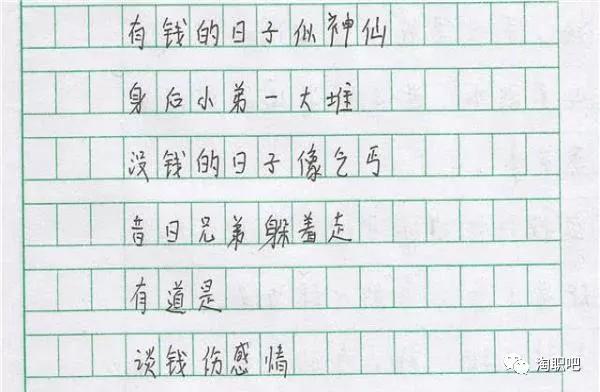 有钱的日子似神仙
身后小弟一大堆
没钱的日子像乞丐
昔日兄弟躲着走
有道是
谈钱伤感情
淘职吧